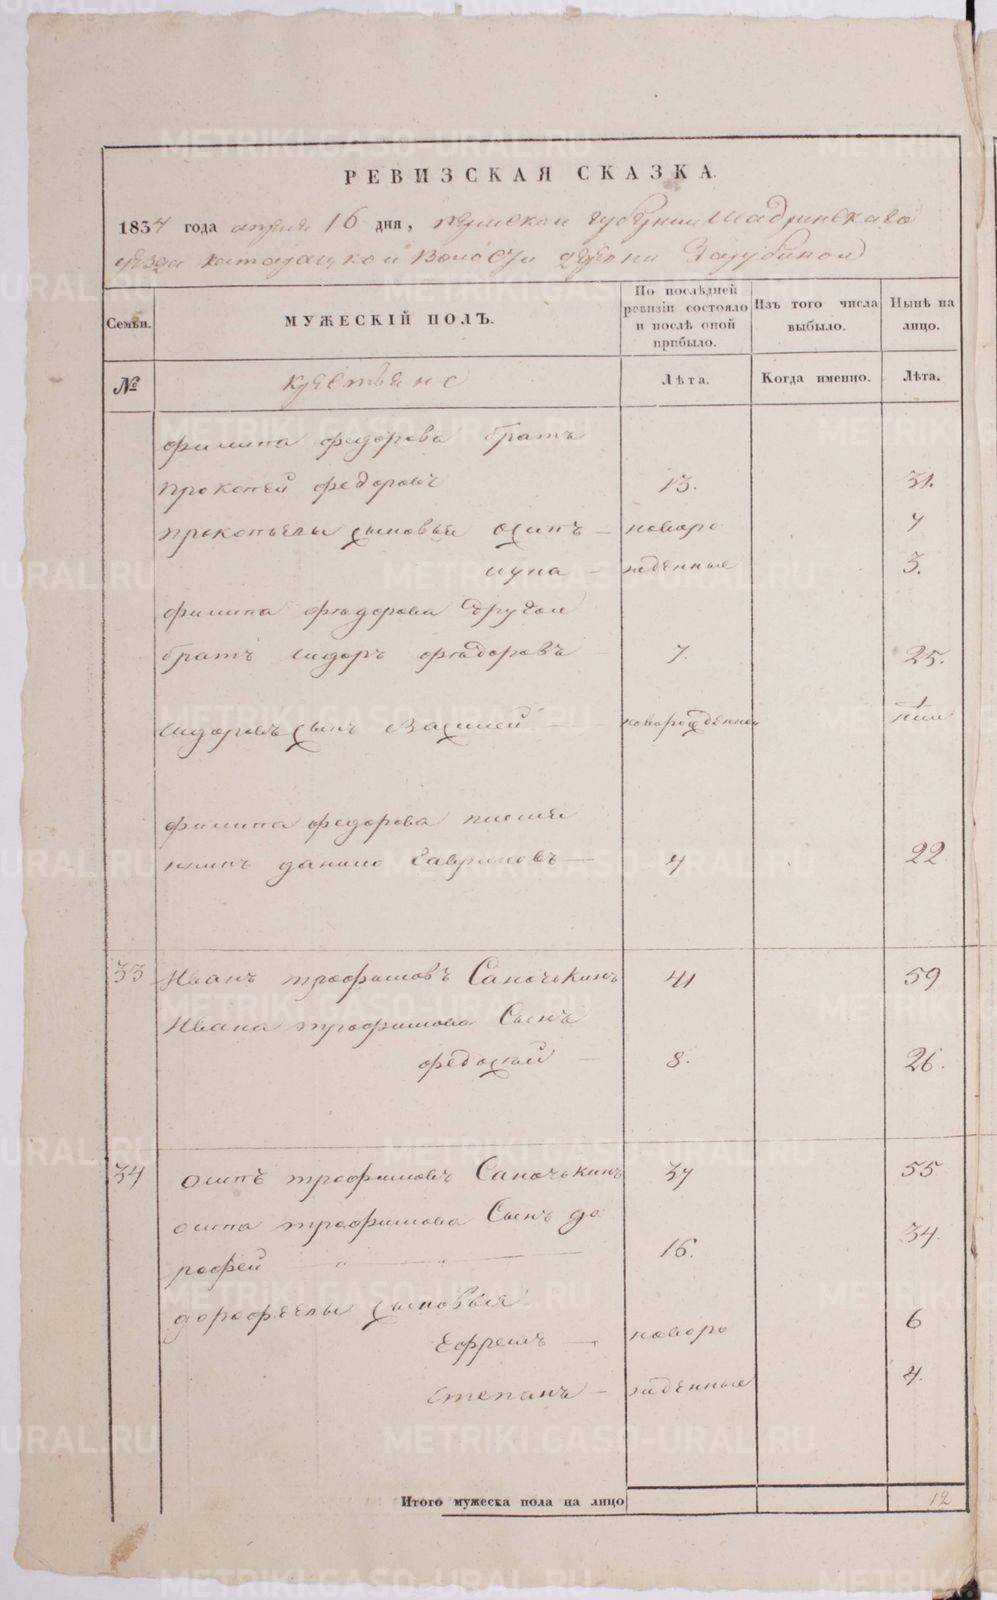 РЕВИЗСКАЯ СКАЗКА.
1834 года апреля 16 дня, пермской губернии Шадринскаго
уезда катайцкой Волости деревни Зарубиной
Семьи.
МУЖЕСКІЙ ПОЛЪ.
По послѣдней ревизіи состояло и послѣ оной прибыло.
Изъ того числа выбыло.
Нынѣ на лицо.
№
крестьяне
Лѣта.
Когда именно.
Лѣта.
филипа федорова братъ
прокопей федоровъ 13. 31.
прокопьевы сыновья осипъ – новоро 7
– жденные 3.
филипа фюдорова другой
братъ сидоръ фюдоровъ 7. 25.
сидоровъ сынъ Васишей – новорожденной
филипа федорова племян
никъ данило Гавриловъ – 4 22
33 Иванъ трофимовъ Саночькинъ 41 59
Ивана трофимова Сынъ
федосъй – 8. 26.
34 осипъ трофимовъ Саночькинъ 37 55
осипа трофимова Сынъ до
рофей 16. 34.
дорофеевы сыновья
Ефремъ – новоро 6
степанъ – жденные 4.
Итого мужеска пола на лицо 12
METRIKI.GASO-URAL.RU